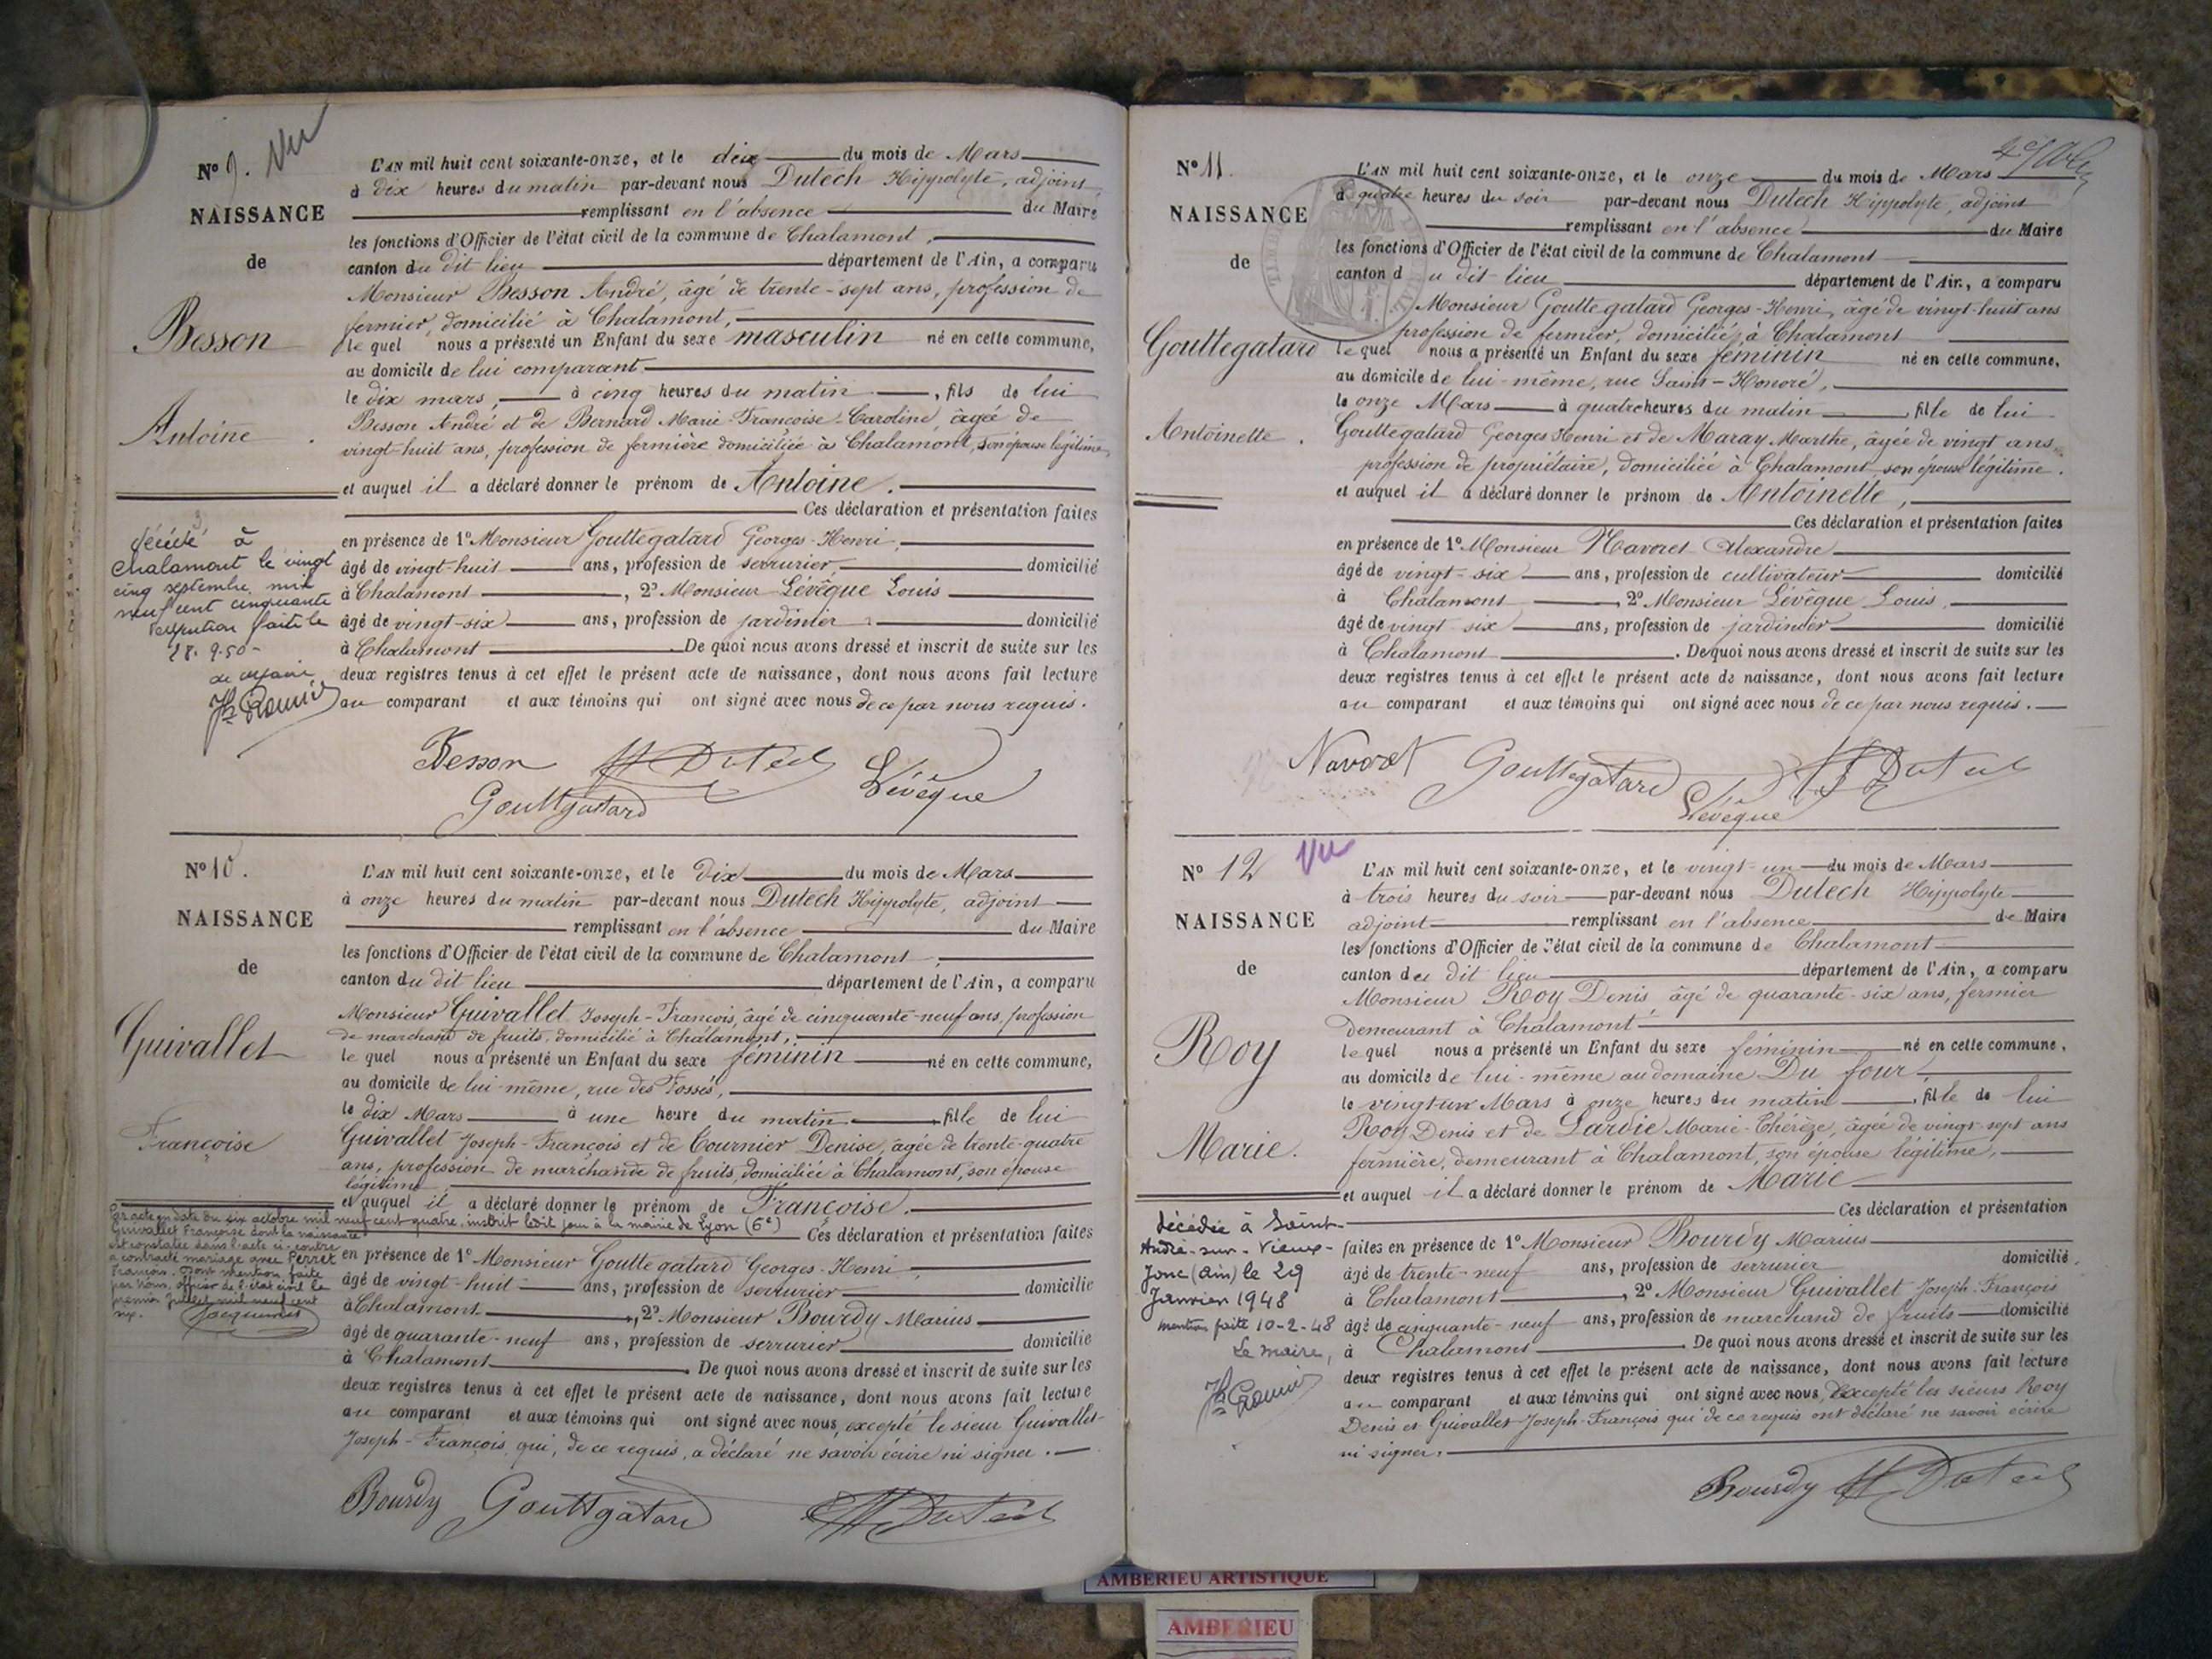 N° 9. Vu
NAISSANCE
de
Besson
Antoine.
décédé à
Chalamont le vingt
cinq septembre mil
neuf cent cinquante
faite le
28. 9. 50 -
L'AN mil huit cent soixante-onze, et le dix du mois de Mars
à dix heures du matin par-devant nous Dutech Hippolyte, adjoint
remplissant en l'absence du Maire
les fonctions d'Officier de l'état civil de la commune de Chalamont,
canton du dit lieu département de l'Ain, a comparu
Monsieur Besson André, âgé de trente-sept ans, profession de
fermier, domicilié à Chalamont,
lequel nous a présenté un Enfant du sexe masculin né en cette commune,
au domicile de lui comparant
le dix mars, à cinq heures du matin, fils de lui
Besson André et de Bernard Marie-Françoise-Caroline, âgée de
vingt-huit ans, profession de fermière domiciliée à Chalamont, son épouse légitime,
et auquel il a déclaré donner le prénom de Antoine.
Ces déclaration et présentation faites
en présence de 1° Monsieur Gouttegatard Georges-Henri,
âgé de vingt-huit ans, profession de serrurier, domicilié
à Chalamont, 2° Monsieur Lévêque Louis
âgé de vingt-six ans, profession de jardinier domicilié
à Chalamont. De quoi nous avons dressé et inscrit de suite sur les
deux registres tenus à cet effet le présent acte de naissance, dont nous avons fait lecture
au comparant et aux témoins qui ont signé avec nous de ce par nous requis.
Besson H Dutech Lévêque
Gouttgatard
N° 10.
NAISSANCE
de
Guivallet
Françoise
Par acte en date du six octobre mil neuf cent quatre, inscrit ledit jour à la mairie de Lyon (6e)
Guivallet Françoise dont la naissance
est constatée dans l'acte ci-contre
a contracté mariage avec Perret
François. Dont mention faite
par nous, officier de l'état civil le
premier Juillet mil neuf cent
six. Jacquemet
L'AN mil huit cent soixante-onze, et le dix du mois de Mars
à onze heures du matin par-devant nous Dutech Hippolyte, adjoint
remplissant en l'absence du Maire
les fonctions d'Officier de l'état civil de la commune de Chalamont,
canton du dit lieu département de l'Ain, a comparu
Monsieur Guivallet Joseph-François, âgé de cinquante-neuf ans, profession
de marchand de fruits, domicilié à Chalamont,
lequel nous a présenté un Enfant du sexe féminin né en cette commune,
au domicile de lui-même, rue des Fossés,
le dix Mars à une heure du matin, fille de lui
Guivallet Joseph-François et de Cournier Denise, âgée de trente-quatre
ans, profession de marchande de fruits, domiciliée à Chalamont, son épouse
légitime,
et auquel il a déclaré donner le prénom de Françoise.
Ces déclaration et présentation faites
en présence de 1° Monsieur Gouttegatard Georges-Henri,
âgé de vingt-huit ans, profession de serrurier domicilié
à Chalamont, 2° Monsieur Bourdy Marius
âgé de quarante-neuf ans, profession de serrurier domicilié
à Chalamont. De quoi nous avons dressé et inscrit de suite sur les
deux registres tenus à cet effet le présent acte de naissance, dont nous avons fait lecture
au comparant et aux témoins qui ont signé avec nous, excepté le sieur Guivallet
Joseph-François, qui, de ce requis, a déclaré ne savoir écrire ni signer.
Bourdy Gouttgatard H Dutech
N° 11.
NAISSANCE
de
Gouttegatard
Antoinette.
L'AN mil huit cent soixante-onze, et le onze du mois de Mars
à quatre heures du soir par-devant nous Dutech Hippolyte, adjoint
remplissant en l'absence du Maire
les fonctions d'Officier de l'état civil de la commune de Chalamont
canton du dit lieu département de l'Ain, a comparu
Monsieur Gouttegatard Georges-Henri, âgé de vingt-huit ans
profession de fermier, domicilié à Chalamont
lequel nous a présenté un Enfant du sexe féminin né en cette commune,
au domicile de lui-même, rue Saint-Honoré,
le onze Mars à quatre heures du matin, fille de lui
Gouttegatard Georges Henri et de Maray Marthe, âgée de vingt ans,
profession de propriétaire, domiciliée à Chalamont son épouse légitime.
et auquel il a déclaré donner le prénom de Antoinette,
Ces déclaration et présentation faites
en présence de 1° Monsieur Navoret Alexandre
âgé de vingt-six ans, profession de cultivateur domicilié
à Chalamont, 2° Monsieur Lévêque Louis,
âgé de vingt six ans, profession de jardinier domicilié
à Chalamont. De quoi nous avons dressé et inscrit de suite sur les
deux registres tenus à cet effet le présent acte de naissance, dont nous avons fait lecture
au comparant et aux témoins qui ont signé avec nous de ce par nous requis.
Navoret Gouttegatard H Dutech
Lévêque
N° 12 Vu
NAISSANCE
de
Roy
Marie.
décédée à Saint-
André-sur-Vieux-
Jonc (Ain) le 29
Janvier 1948
mention faite 10-2-48
Le maire,
L'AN mil huit cent soixante-onze, et le vingt-un du mois de Mars
à trois heures du soir par-devant nous Dutech Hippolyte
adjoint remplissant en l'absence de Maire
les fonctions d'Officier de l'état civil de la commune de Chalamont
canton du dit lieu département de l'Ain, a comparu
Monsieur Roy Denis, âgé de quarante-six ans, fermier
demeurant à Chalamont
lequel nous a présenté un Enfant du sexe féminin né en cette commune,
au domicile de lui-même au domaine Du four
le vingt un Mars à onze heures du matin, fille de lui
Roy Denis et de Lardie Marie-Thérèze, âgée de vingt-sept ans
fermière, demeurant à Chalamont, son épouse légitime,
et auquel il a déclaré donner le prénom de Marie
Ces déclaration et présentation
faites en présence de 1° Monsieur Bourdy Marius
âgé de trente-neuf ans, profession de serrurier domicilié
à Chalamont, 2° Monsieur Guivallet Joseph-François
âgé de cinquante-neuf ans, profession de marchand de fruits domicilié
à Chalamont. De quoi nous avons dressé et inscrit de suite sur les
deux registres tenus à cet effet le présent acte de naissance, dont nous avons fait lecture
au comparant et aux témoins qui ont signé avec nous, excepté les sieurs Roy
Denis et Guivallet Joseph-François qui de ce requis ont déclaré ne savoir écrire
ni signer.
Bourdy H Dutech
AMBERIEU ARTISTIQUE
AMBERIEU